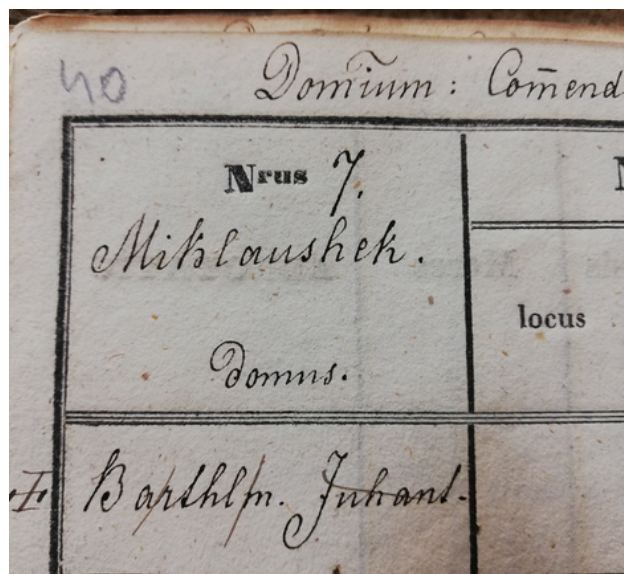 40
Domīum: Com̄end
Nrus 7.
Miklaushek.
locus
Domus.
Barthlm. Juhant.